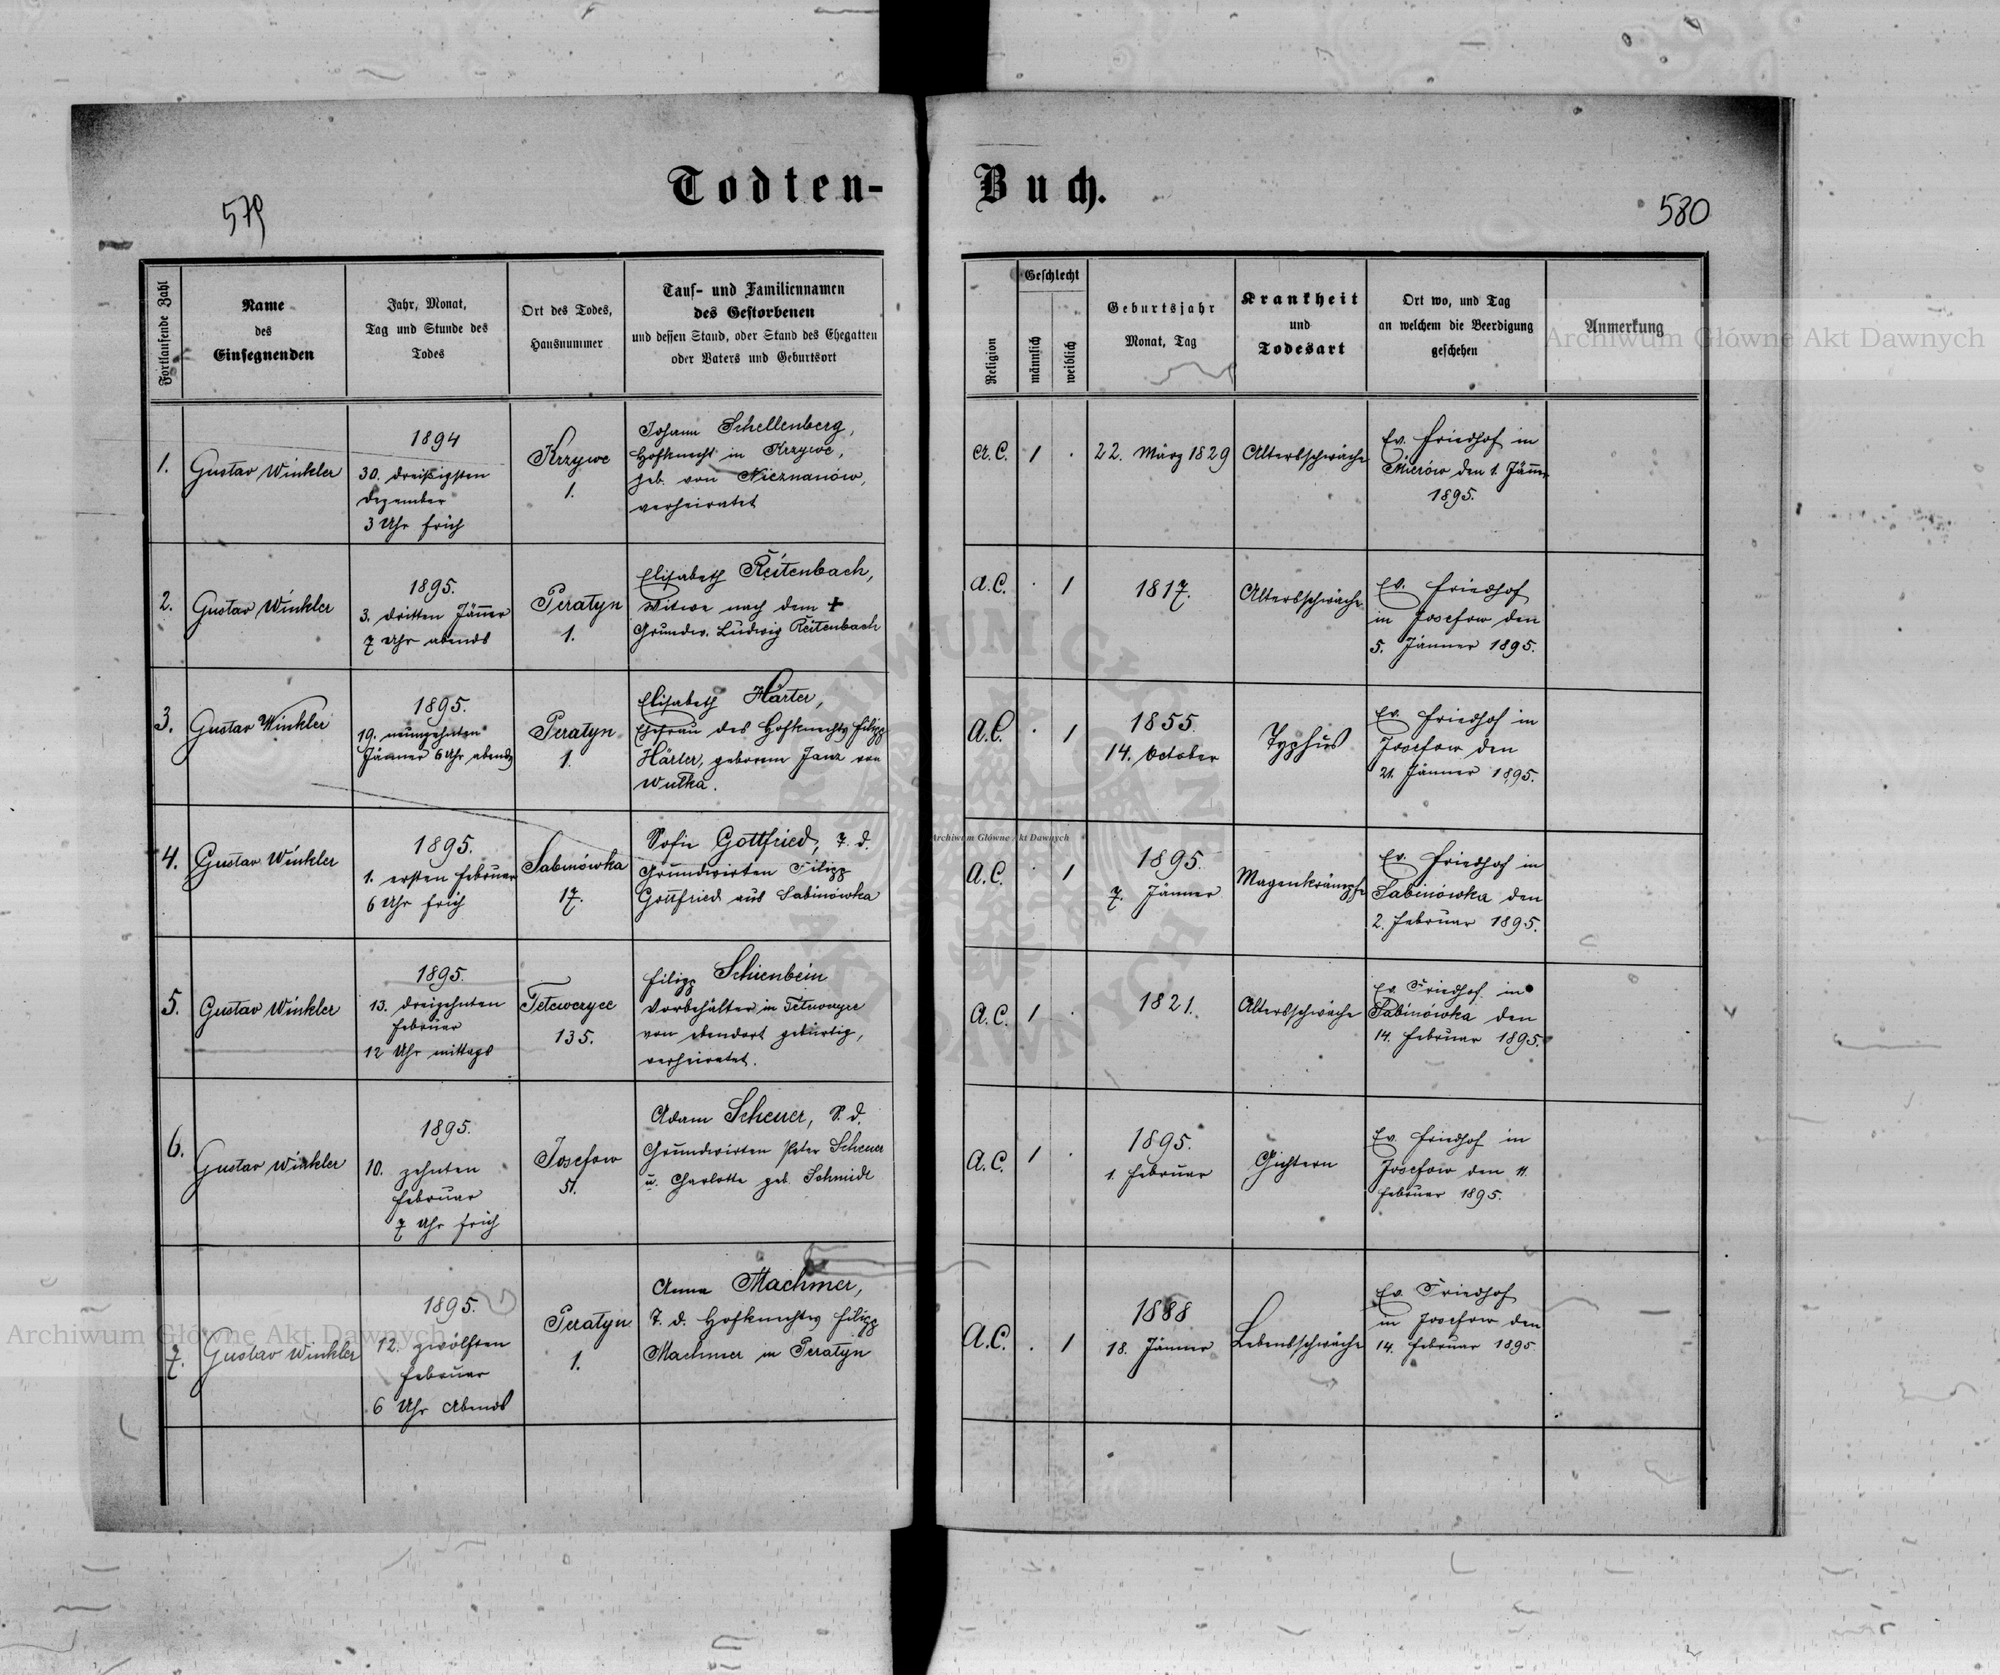 Todten-Buch.
579
580
Fortlaufende Zahl
Name
des
Einsegnenden
Jahr, Monat,
Tag und Stunde des
Todes
Ort des Todes,
Hausnummer
Tauf- und Familiennamen
des Gestorbenen
und dessen Stand, oder Stand des Ehegatten
oder Vaters und Geburtsort
Religion
Geschlecht
männlich
weiblich
Geburtsjahr
Monat, Tag
Krankheit
und
Todesart
Ort wo, und Tag
an welchem die Beerdigung
geschehen
Anmerkung
1.
Gustav Winkler
1894
30. dreißigsten
Dezember
3 Uhr früh
Krzywe
1.
Johann Schellenberg,
Hofknecht in Krzywe,
geb. von Nieznanów,
verheiratet
A.C.
1
.
22. März 1829
Altersschwäche
Ev. Friedhof in
den 1. Jänner
1895.
2.
Gustav Winkler
1895.
3. dritten Jänner
7 Uhr abends
Peratyn
1.
Elisabeth Reitenbach,
Witwe nach dem +
Grundw. Ludwig Reitenbach
A.C.
.
1
1817.
Altersschwäche
Ev. Friedhof
in Josefow den
5. Jänner 1895.
3.
Gustav Winkler
1895.
19. neunzehnten
Jänner 6 Uhr abends
Peratyn
1.
Elisabeth Härter,
Ehefrau des Hofknechts Filipp
Härter, geborene Janz von
Wulka.
A.C.
.
1
1855.
14. October
Typhus
Ev. Friedhof in
Josefow den
21. Jänner 1895.
4.
Gustav Winkler
1895.
1. ersten Februar
6 Uhr früh
Sabinówka
17.
Sofie Gottfried, T. d.
Grundwirten Filipp
Gottfried aus Sabinówka
A.C.
.
1
1895.
7. Jänner
Magenkrämpfe
Ev. Friedhof in
Sabinówka den
2. Februar 1895.
5.
Gustav Winkler
1895.
13. dreizehnten
Februar
12 Uhr mittags
Tetewczyce
135.
Filipp Schienbein
Vorbehälter in Tetewczyce
von ebendort gebürtig,
verheiratet.
A.C.
1
.
1821.
Altersschwäche
Ev. Friedhof in
Sabinówka den
14. Februar 1895.
6.
Gustav Winkler
1895.
10. zehnten
Februar
7 Uhr früh
Josefow
51.
Adam Scheuer, S. d.
Grundwirten Peter Scheuer
u. Charlotte geb. Schmidt
A.C.
1
.
1895.
1. Februar
Gichtern
Ev. Friedhof in
Josefow den 11.
Februar 1895.
7.
Gustav Winkler
1895.
12. zwölften
Februar
6 Uhr Abends
Peratyn
1.
Anna Machmer,
T. d. Hofknechts Filipp
Machmer in Peratyn
A.C.
.
1
1888
18. Jänner
Lebensschwäche
Ev. Friedhof
in Josefow den
14. Februar 1895.
Archiwum Główne Akt Dawnych
Archiwum Główne Akt Dawnych
Archiwum Główne Akt Dawnych
ARCHIWUM GŁÓWNE AKT DAWNYCH